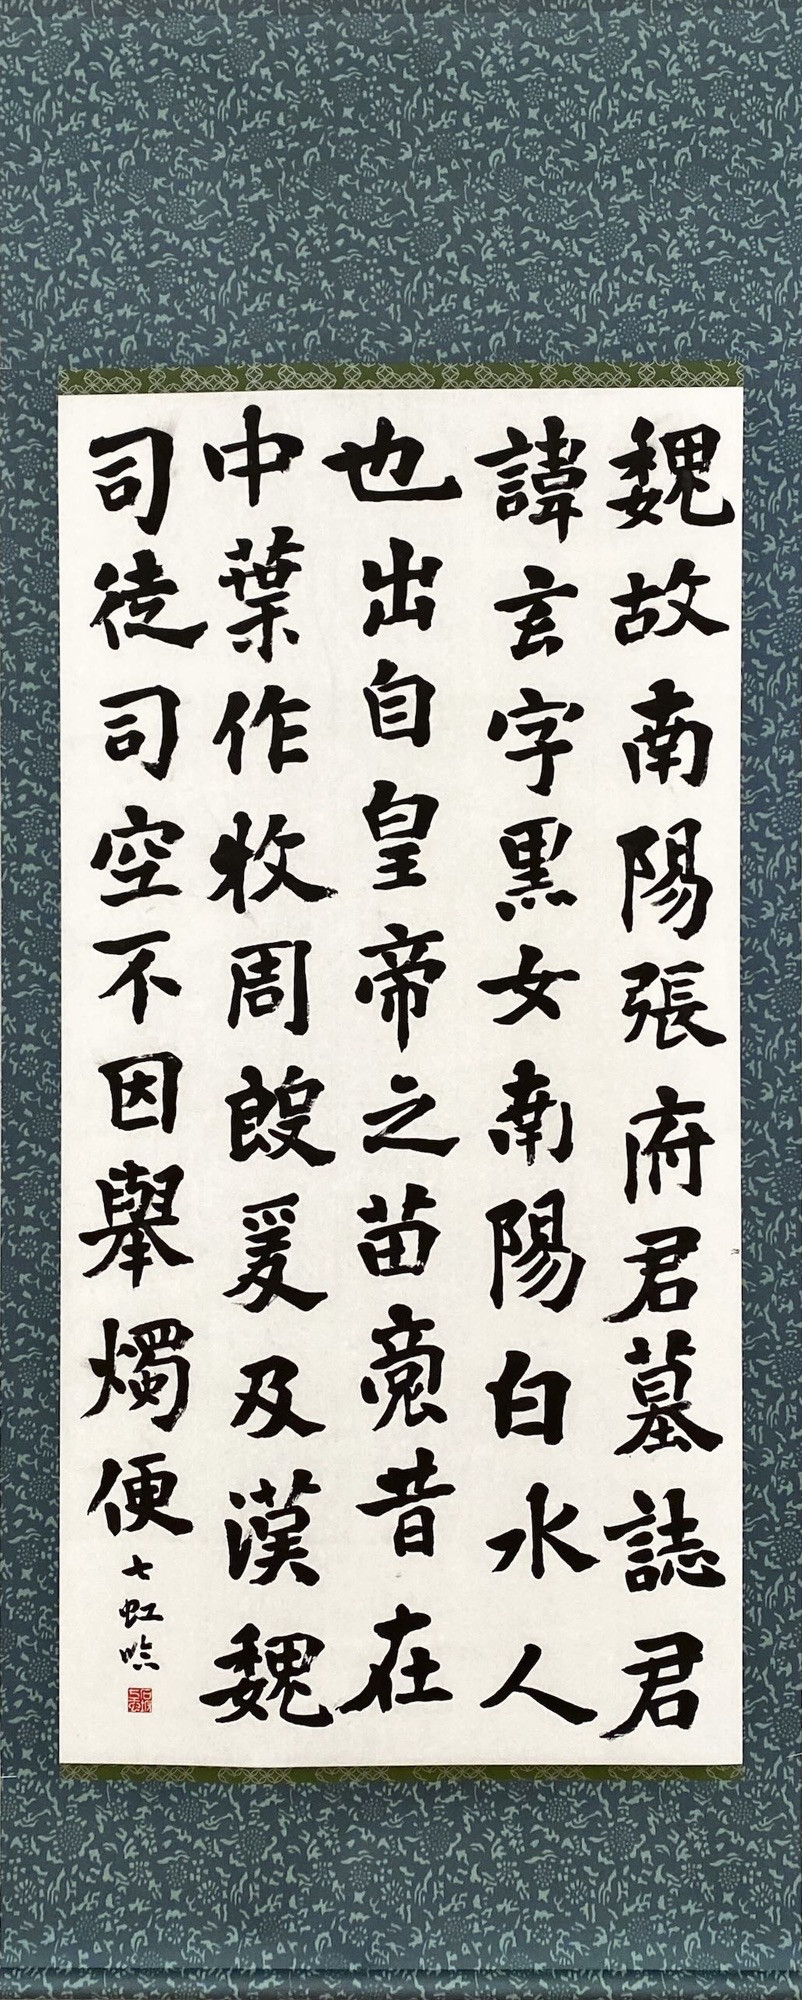 魏故南陽張府君墓誌君
諱玄字黒女南陽白水人
也出自皇帝之苗裔昔在
中葉作牧周殷爰及漢魏
司徒司空不因舉燭便
七虹臨